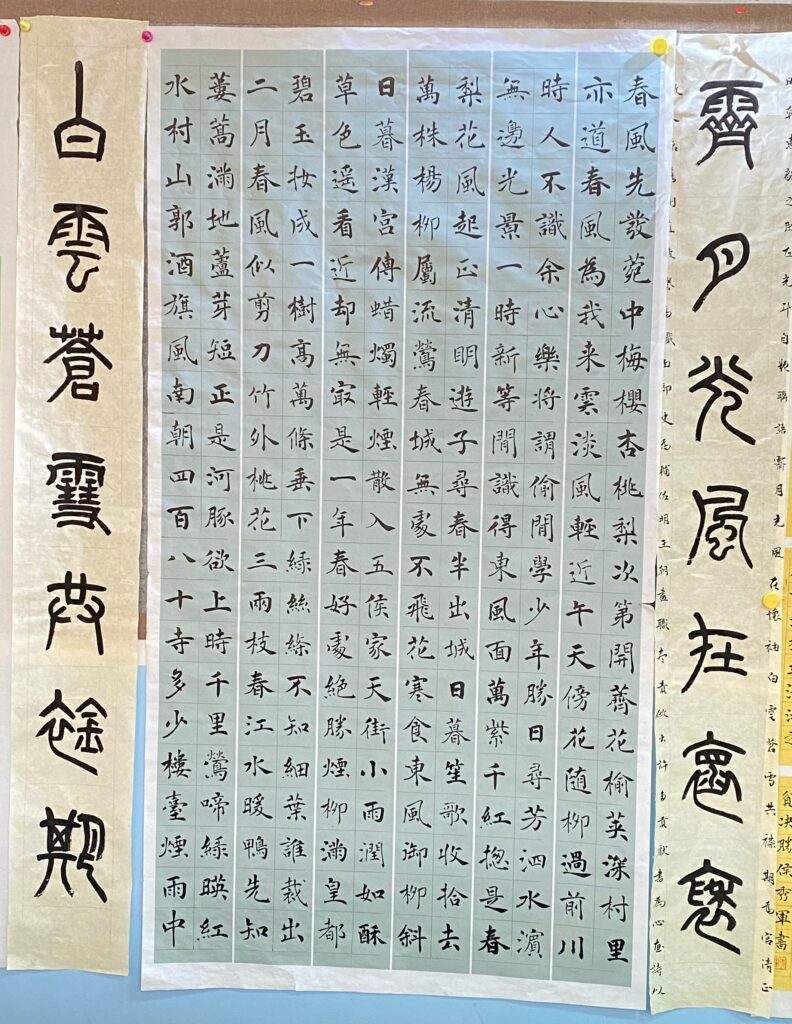 決勝侯秀軍書
左光斗自聯語霽月光風在懷袖白雲蒼雪共襟期為官清正
霽月光風在懷袖
春風先發苑中梅櫻杏桃梨次第開薺花榆莢深村里
亦道春風為我来雲淡風輕近午天傍花随柳過前川
時人不識余心樂將謂偷閒學少年勝日尋芳泗水濱
無邊光景一時新等閒識得東風面萬紫千紅揔是春
梨花風起正清明遊子尋春半出城日暮笙歌收拾去
萬株楊柳屬流鶯春城無處不飛花寒食東風御柳斜
日暮漢宮傳蜡燭輕煙散入五侯家天街小雨潤如酥
草色遥看近却無㝡是一年春好處絕勝煙柳滿皇都
碧玉妆成一樹高萬條垂下綠絲絛不知細葉誰裁出
二月春風似剪刀竹外桃花三兩枝春江水暖鴨先知
蔞蒿滿地蘆芽短正是河豚欲上時千里鶯啼綠暎紅
水村山郭酒旗風南朝四百八十寺多少樓臺煙雨中
白雲蒼雪共襟期